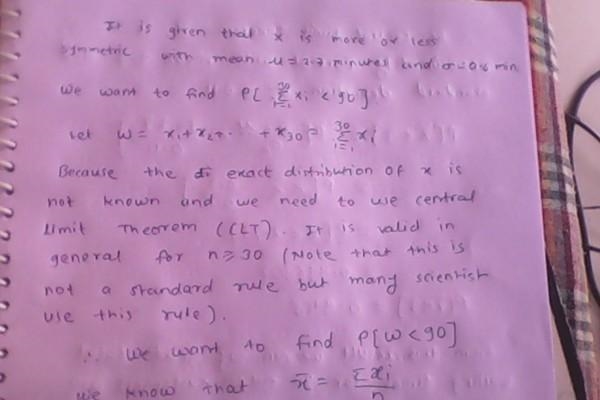 It is given that x is more or less
symmetric with mean μ = 2.7 minutes and σ = 0.6 min
We want to find P[ ∑_{i=1}^{30} xi < 90]
Let W = x1 + x2 + . . + x30 = ∑_{i=1}^{30} xi
Because the exact distribution of x is
not known and we need to use central
limit Theorem (CLT). It is valid in
general for n ≥ 30 (Note that this is
not a standard rule but many scientist
use this rule).
∴ We want to find P[W < 90]
We know that x̄ = ∑xi / n